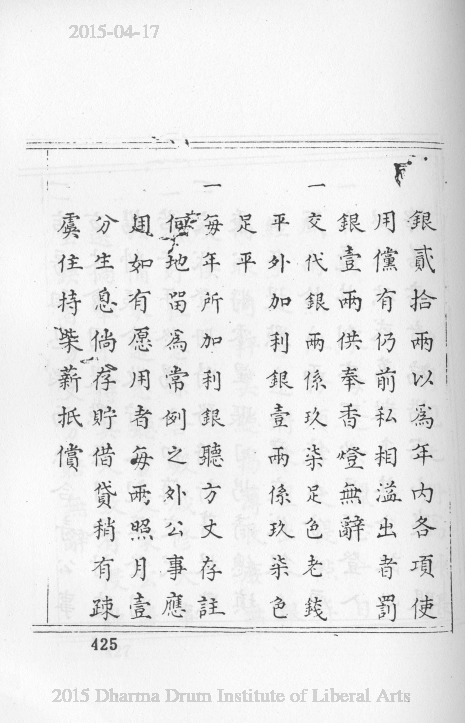 2015-04-17
銀貳拾兩以爲年內各項使
用儻有仍前私相溢出者罰
銀壹兩供奉香燈無辭
一交代銀兩係玖柒足色老錢
平外加利銀壹兩係玖柒色
足平
一每年所加利銀聽方丈存註
何地留爲常例之外公事應
用如有愿用者每兩照月壹
分生息倘存貯借貸稍有疎
虞住持柴薪抵償
425
2015 Dharma Drum Institute of Liberal Arts